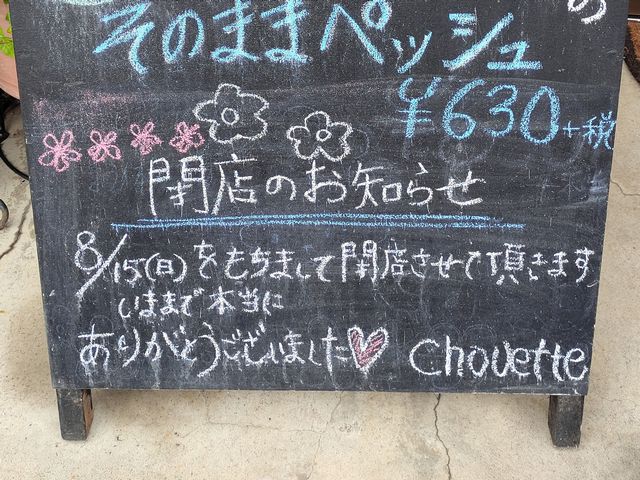 の
そのままペッシュ
¥630+税
閉店のお知らせ
8/15(日)をもちまして閉店させて頂きます
いままで本当に
ありがとうございました♡ Chouette